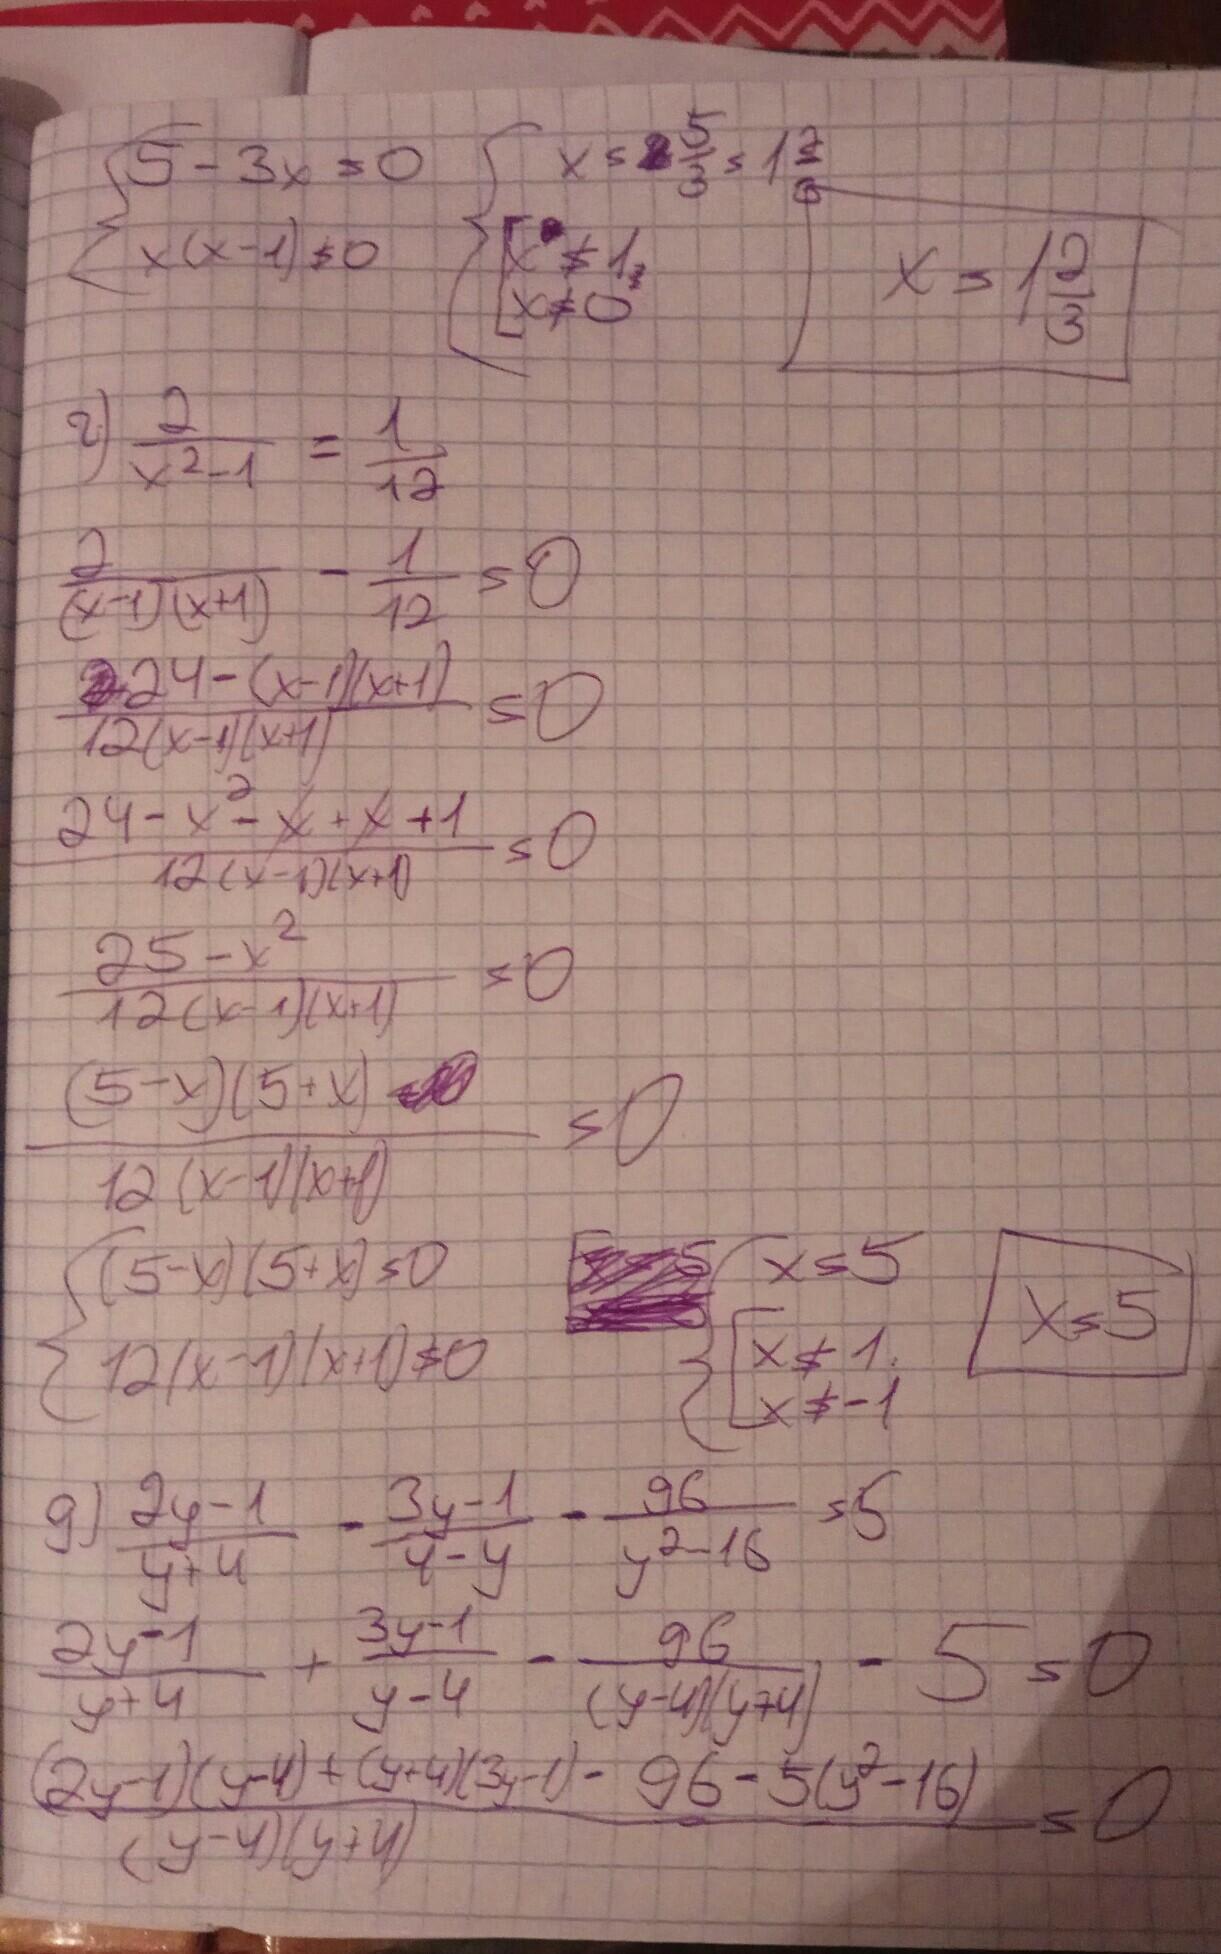 { 5 - 3x = 0 { x = 5/3 = 1 2/3
{ x(x-1) ≠ 0 [ x ≠ 1; x ≠ 0 x = 1 2/3
г) 2/(x²-1) = 1/12
2/((x-1)(x+1)) - 1/12 = 0
(24-(x-1)(x+1))/(12(x-1)(x+1)) = 0
(24 - x² - x + x + 1)/(12(x-1)(x+1)) = 0
(25 - x²)/(12(x-1)(x+1)) = 0
((5-x)(5+x))/(12(x-1)(x+1)) = 0
{ (5-x)(5+x) = 0 { x = 5
{ 12(x-1)(x+1) ≠ 0 [ x ≠ 1; x ≠ -1 x = 5
д) (2y-1)/(y+4) - (3y-1)/(4-y) - 96/(y²-16) = 5
(2y-1)/(y+4) + (3y-1)/(y-4) - 96/((y-4)(y+4)) - 5 = 0
((2y-1)(y-4) + (y+4)(3y-1) - 96 - 5(y²-16))/((y-4)(y+4)) = 0